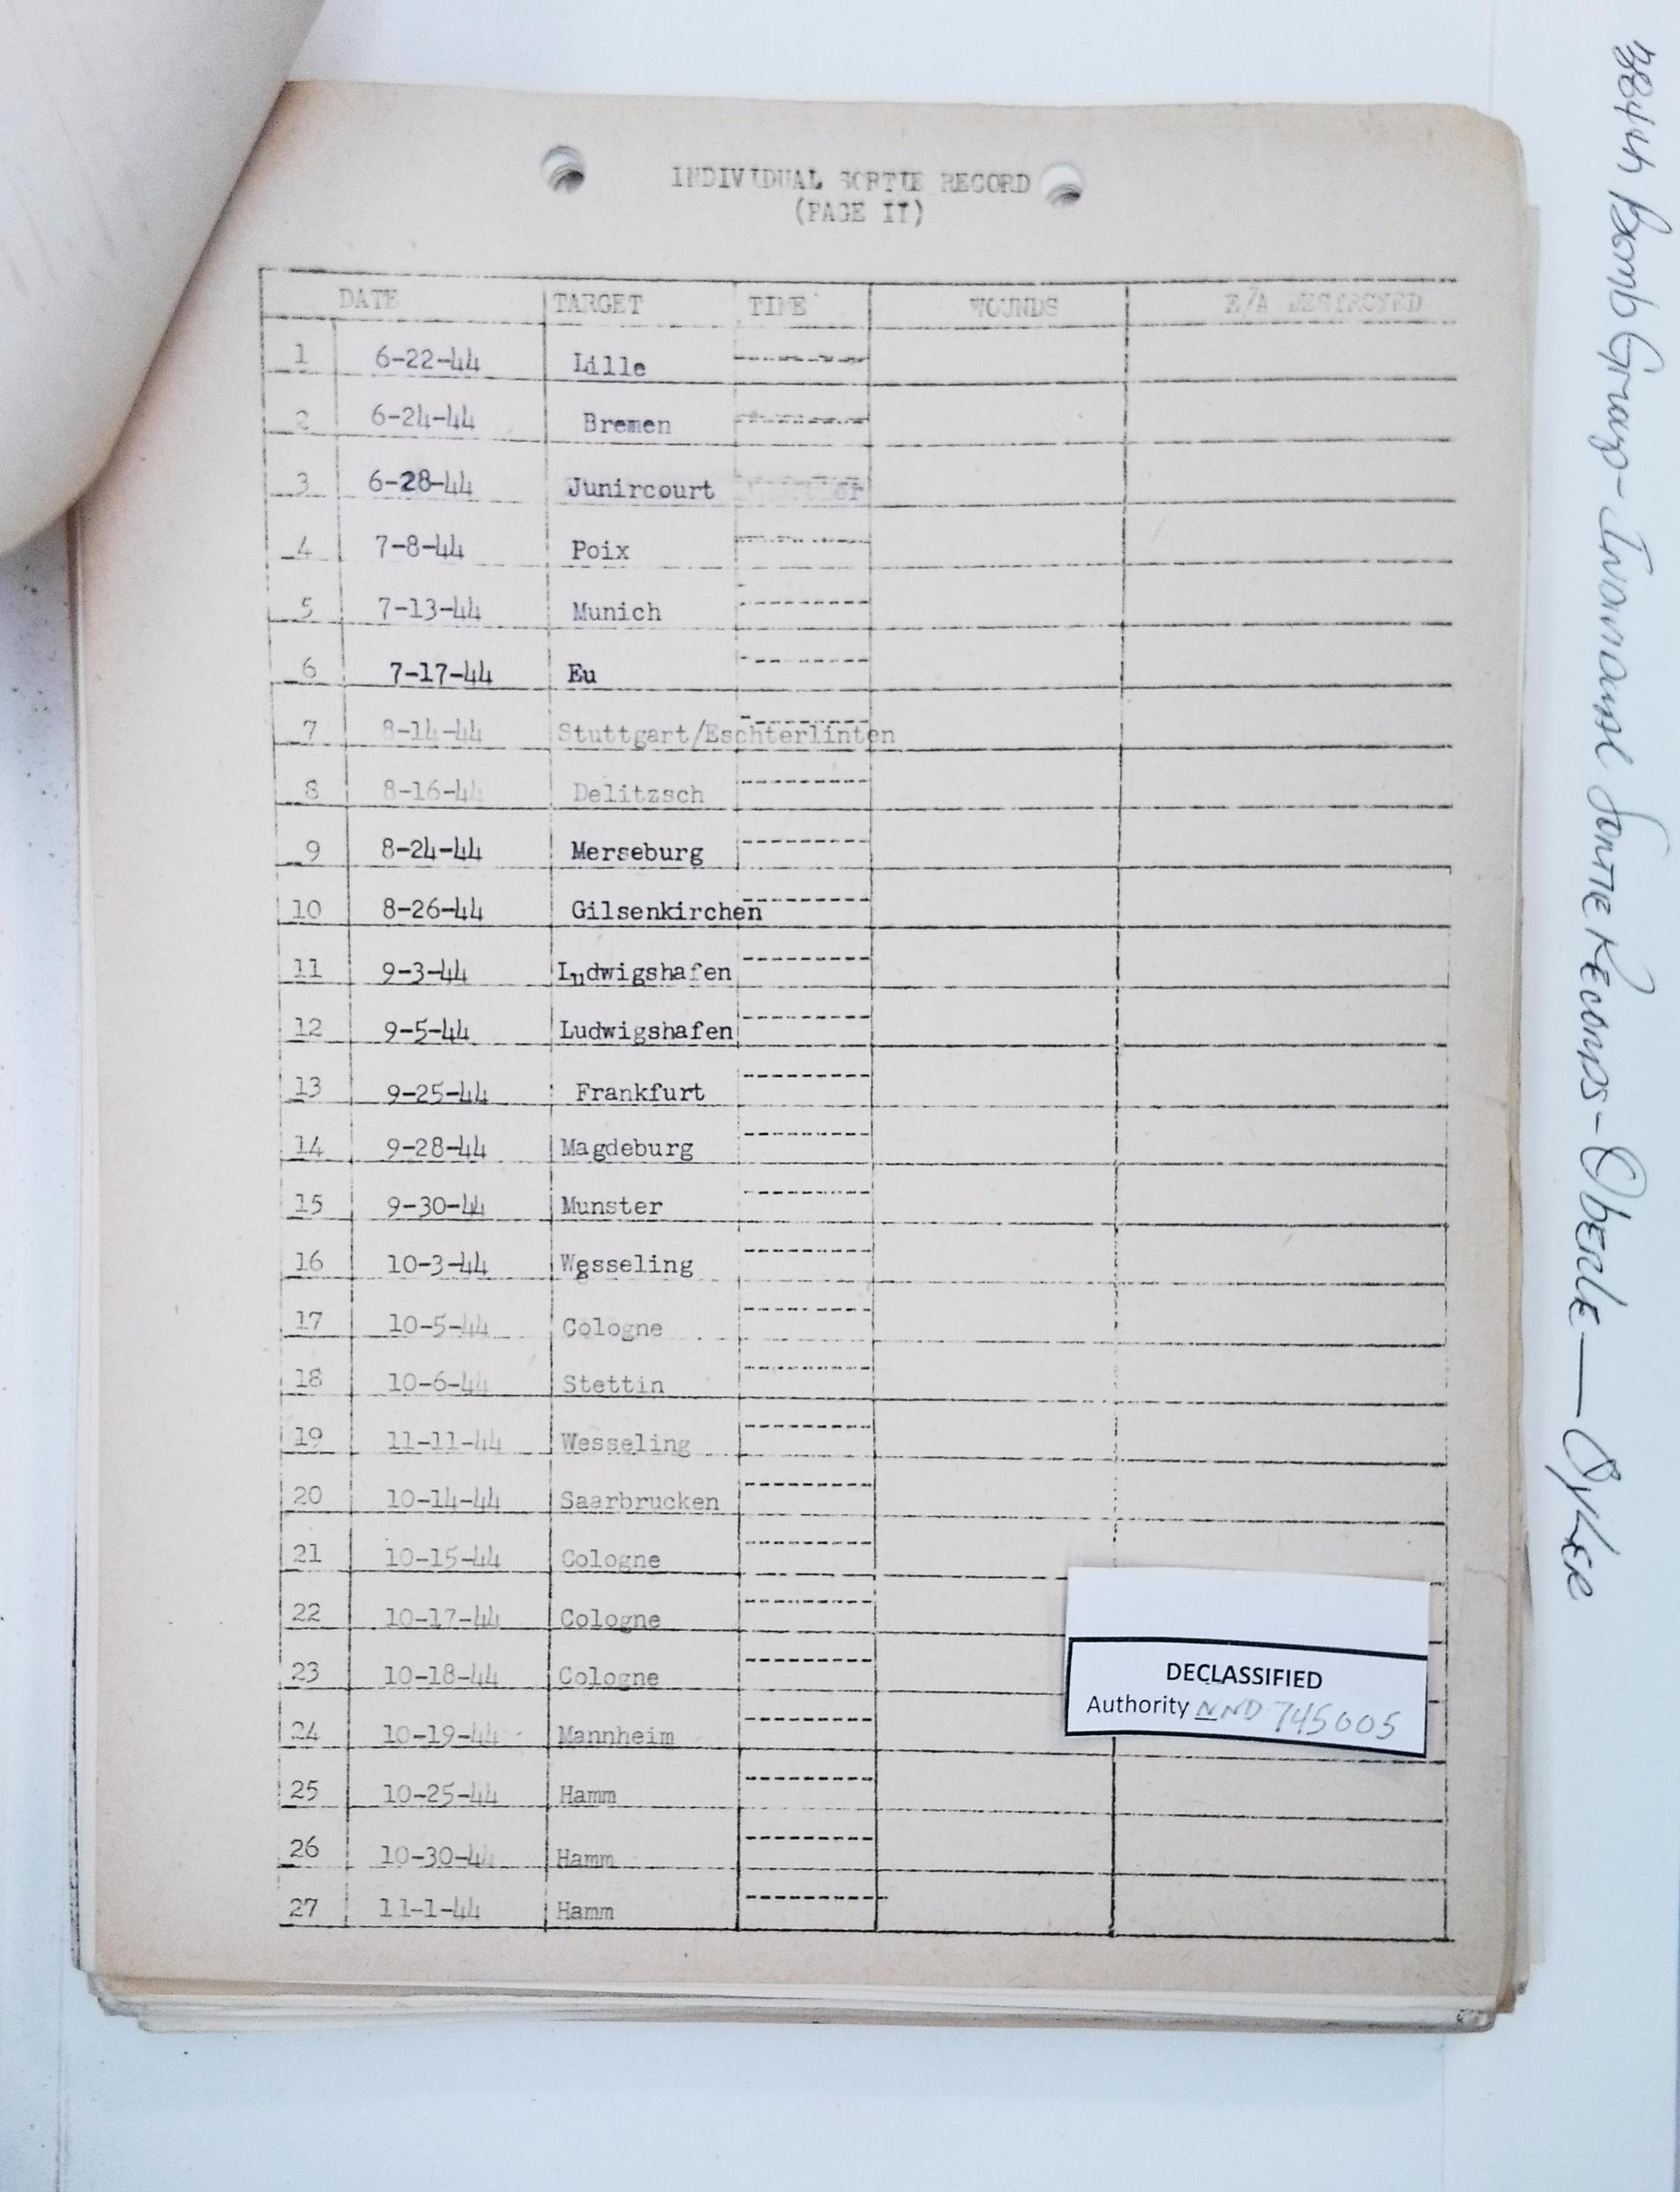 INDIVIDUAL SORTIE RECORD
(PAGE II)
DATE TARGET TIME WOUNDS E/A DESTROYED
1 6-22-44 Lille ---------
2 6-24-44 Bremen ---------
3 6-28-44 Junircourt
4 7-8-44 Poix ---------
5 7-13-44 Munich ---------
6 7-17-44 Eu ---------
7 8-14-44 Stuttgart/Eschterlinten ---------
8 8-16-44 Delitzsch ---------
9 8-24-44 Merseburg ---------
10 8-26-44 Gilsenkirchen ---------
11 9-3-44 Ludwigshafen ---------
12 9-5-44 Ludwigshafen ---------
13 9-25-44 Frankfurt ---------
14 9-28-44 Magdeburg ---------
15 9-30-44 Munster ---------
16 10-3-44 Wesseling ---------
17 10-5-44 Cologne ---------
18 10-6-44 Stettin ---------
19 11-11-44 Wesseling ---------
20 10-14-44 Saarbrucken ---------
21 10-15-44 Cologne ---------
22 10-17-44 Cologne ---------
23 10-18-44 Cologne ---------
24 10-19-44 Mannheim ---------
25 10-25-44 Hamm ---------
26 10-30-44 Hamm ---------
27 11-1-44 Hamm ---------
DECLASSIFIED
Authority NND 745005
384th Bomb Group - Individual Sortie Records - Oberle — Oyler